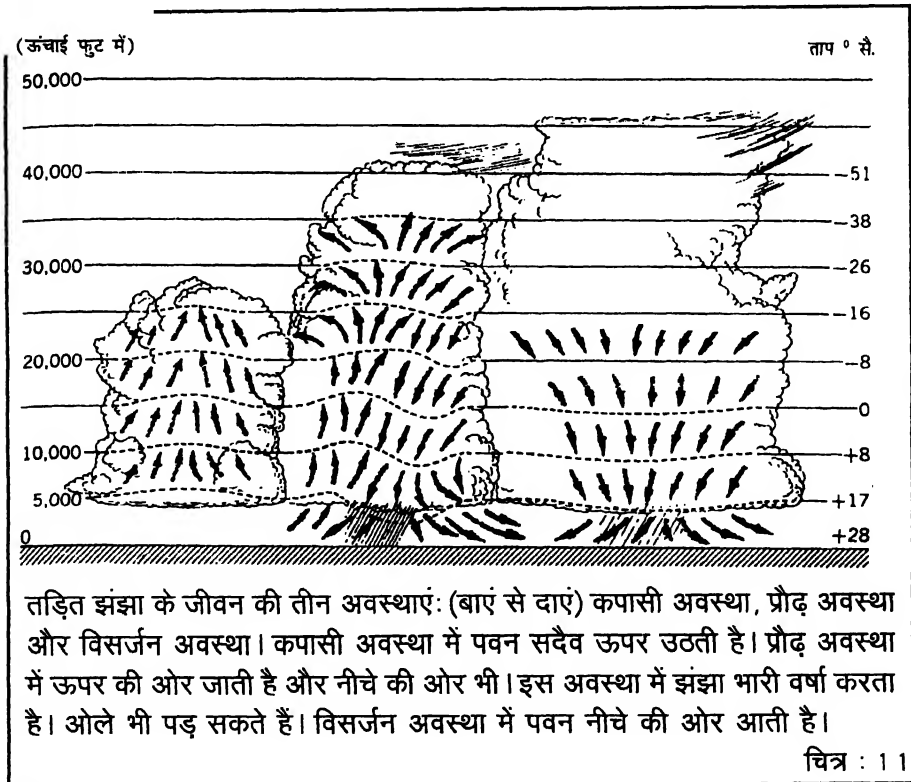 (ऊंचाई फुट में) ताप ° सै.
50,000
40,000 −51
−38
30,000 −26
−16
20,000 −8
0
10,000 +8
5,000 +17
0 +28
तड़ित झंझा के जीवन की तीन अवस्थाएं: (बाएं से दाएं) कपासी अवस्था, प्रौढ़ अवस्था
और विसर्जन अवस्था। कपासी अवस्था में पवन सदैव ऊपर उठती है। प्रौढ़ अवस्था
में ऊपर की ओर जाती है और नीचे की ओर भी। इस अवस्था में झंझा भारी वर्षा करता
है। ओले भी पड़ सकते हैं। विसर्जन अवस्था में पवन नीचे की ओर आती है।
चित्र : 11